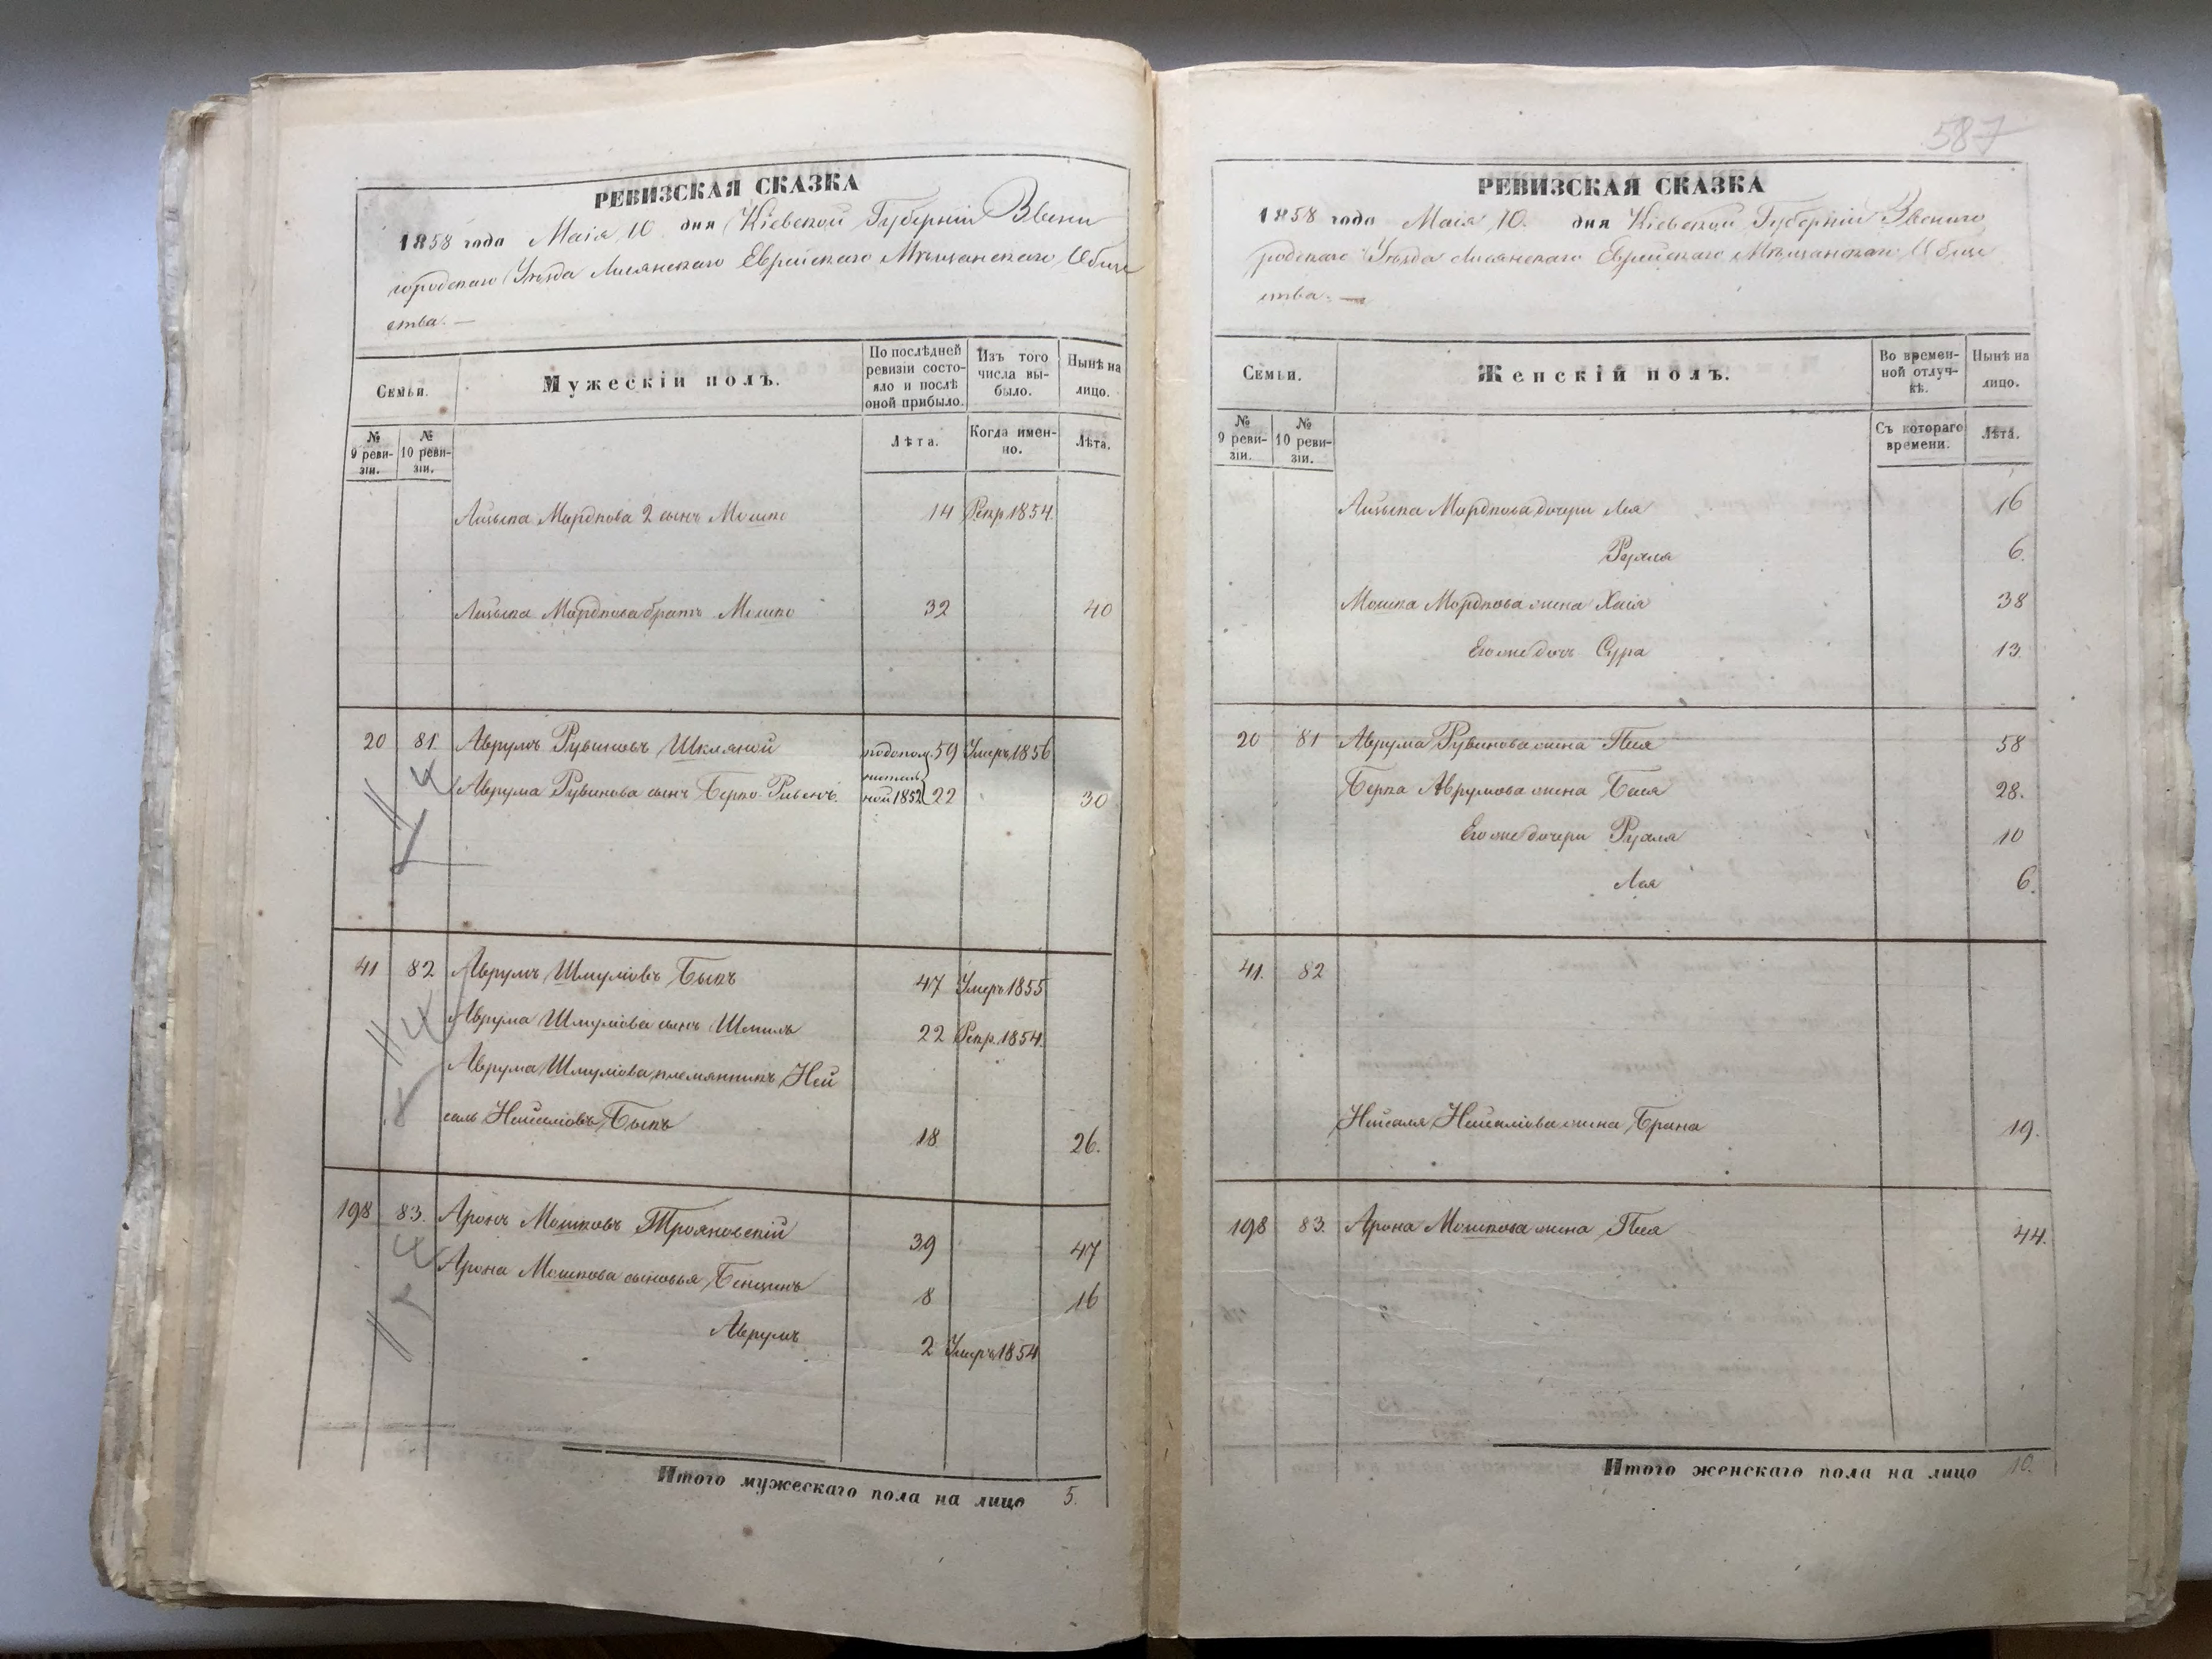 РЕВИЗСКАЯ СКАЗКА
1858 года Маія 10 дня Кіевской Губерніи Звени
городскаго Уѣзда Лисянскаго Еврейскаго Мѣщанскаго Обще
ства. —
Семьи.
Мужескій полъ.
По послѣдней ревизіи состояло и послѣ оной прибыло.
Изъ того числа выбыло.
Нынѣ на лицо.
№ 9 ревизіи.
№ 10 ревизіи.
Лѣта.
Когда именно.
Лѣта.
Мордкова 2 сынъ Мошко 14 Рекр. 1854.
Мордкова братъ Мошко 32 40
20 81. Аврумъ Рувиновъ Шкляной 59 Умеръ 1856
Аврума Рувинова сынъ Берко 1852 22 30
41 82 Аврумъ Шмуліовъ Быкъ 47 Умеръ 1855
Аврума Шмуліова сынъ Шмиль 22 Рекр. 1854.
Аврума Шмуліова племянникъ Ней
саль Нейсаліовъ Быкъ 18 26.
198 83. Аронъ Мошковъ Трояновскій 39 47
Арона Мошкова сыновья Бенціонъ 8 16
Аврумъ 2 Умеръ 1854
Итого мужескаго пола на лицо 5.
587
РЕВИЗСКАЯ СКАЗКА
1858 года Маія 10. дня Кіевской Губерніи Звениго
родскаго Уѣзда Лисянскаго Еврейскаго Мѣщанскаго Обще
ства. —
Семьи.
Женскій полъ.
Во временной отлучкѣ.
Нынѣ на лицо.
№ 9 ревизіи.
№ 10 ревизіи.
Съ котораго времени.
Лѣта.
Мордкова дочери Лея 16
Рухля 6.
Мошка Мордкова жена Хаія 38
Его же дочь Сура 13
20 81 Аврума Рувинова жена Песя 58
Берка Аврумова жена Бася 28.
Его же дочери Рухля 10
Лея 6.
41. 82
Нейсаля Нейсаліова жена Брана 19.
198 83. Арона Мошкова жена Песя 44.
Итого женскаго пола на лицо 10.